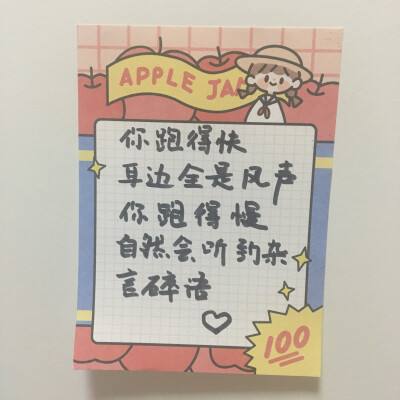 APPLE JA
你跑得快
耳边全是风声
你跑得慢
自然会听到杂
言碎语
100